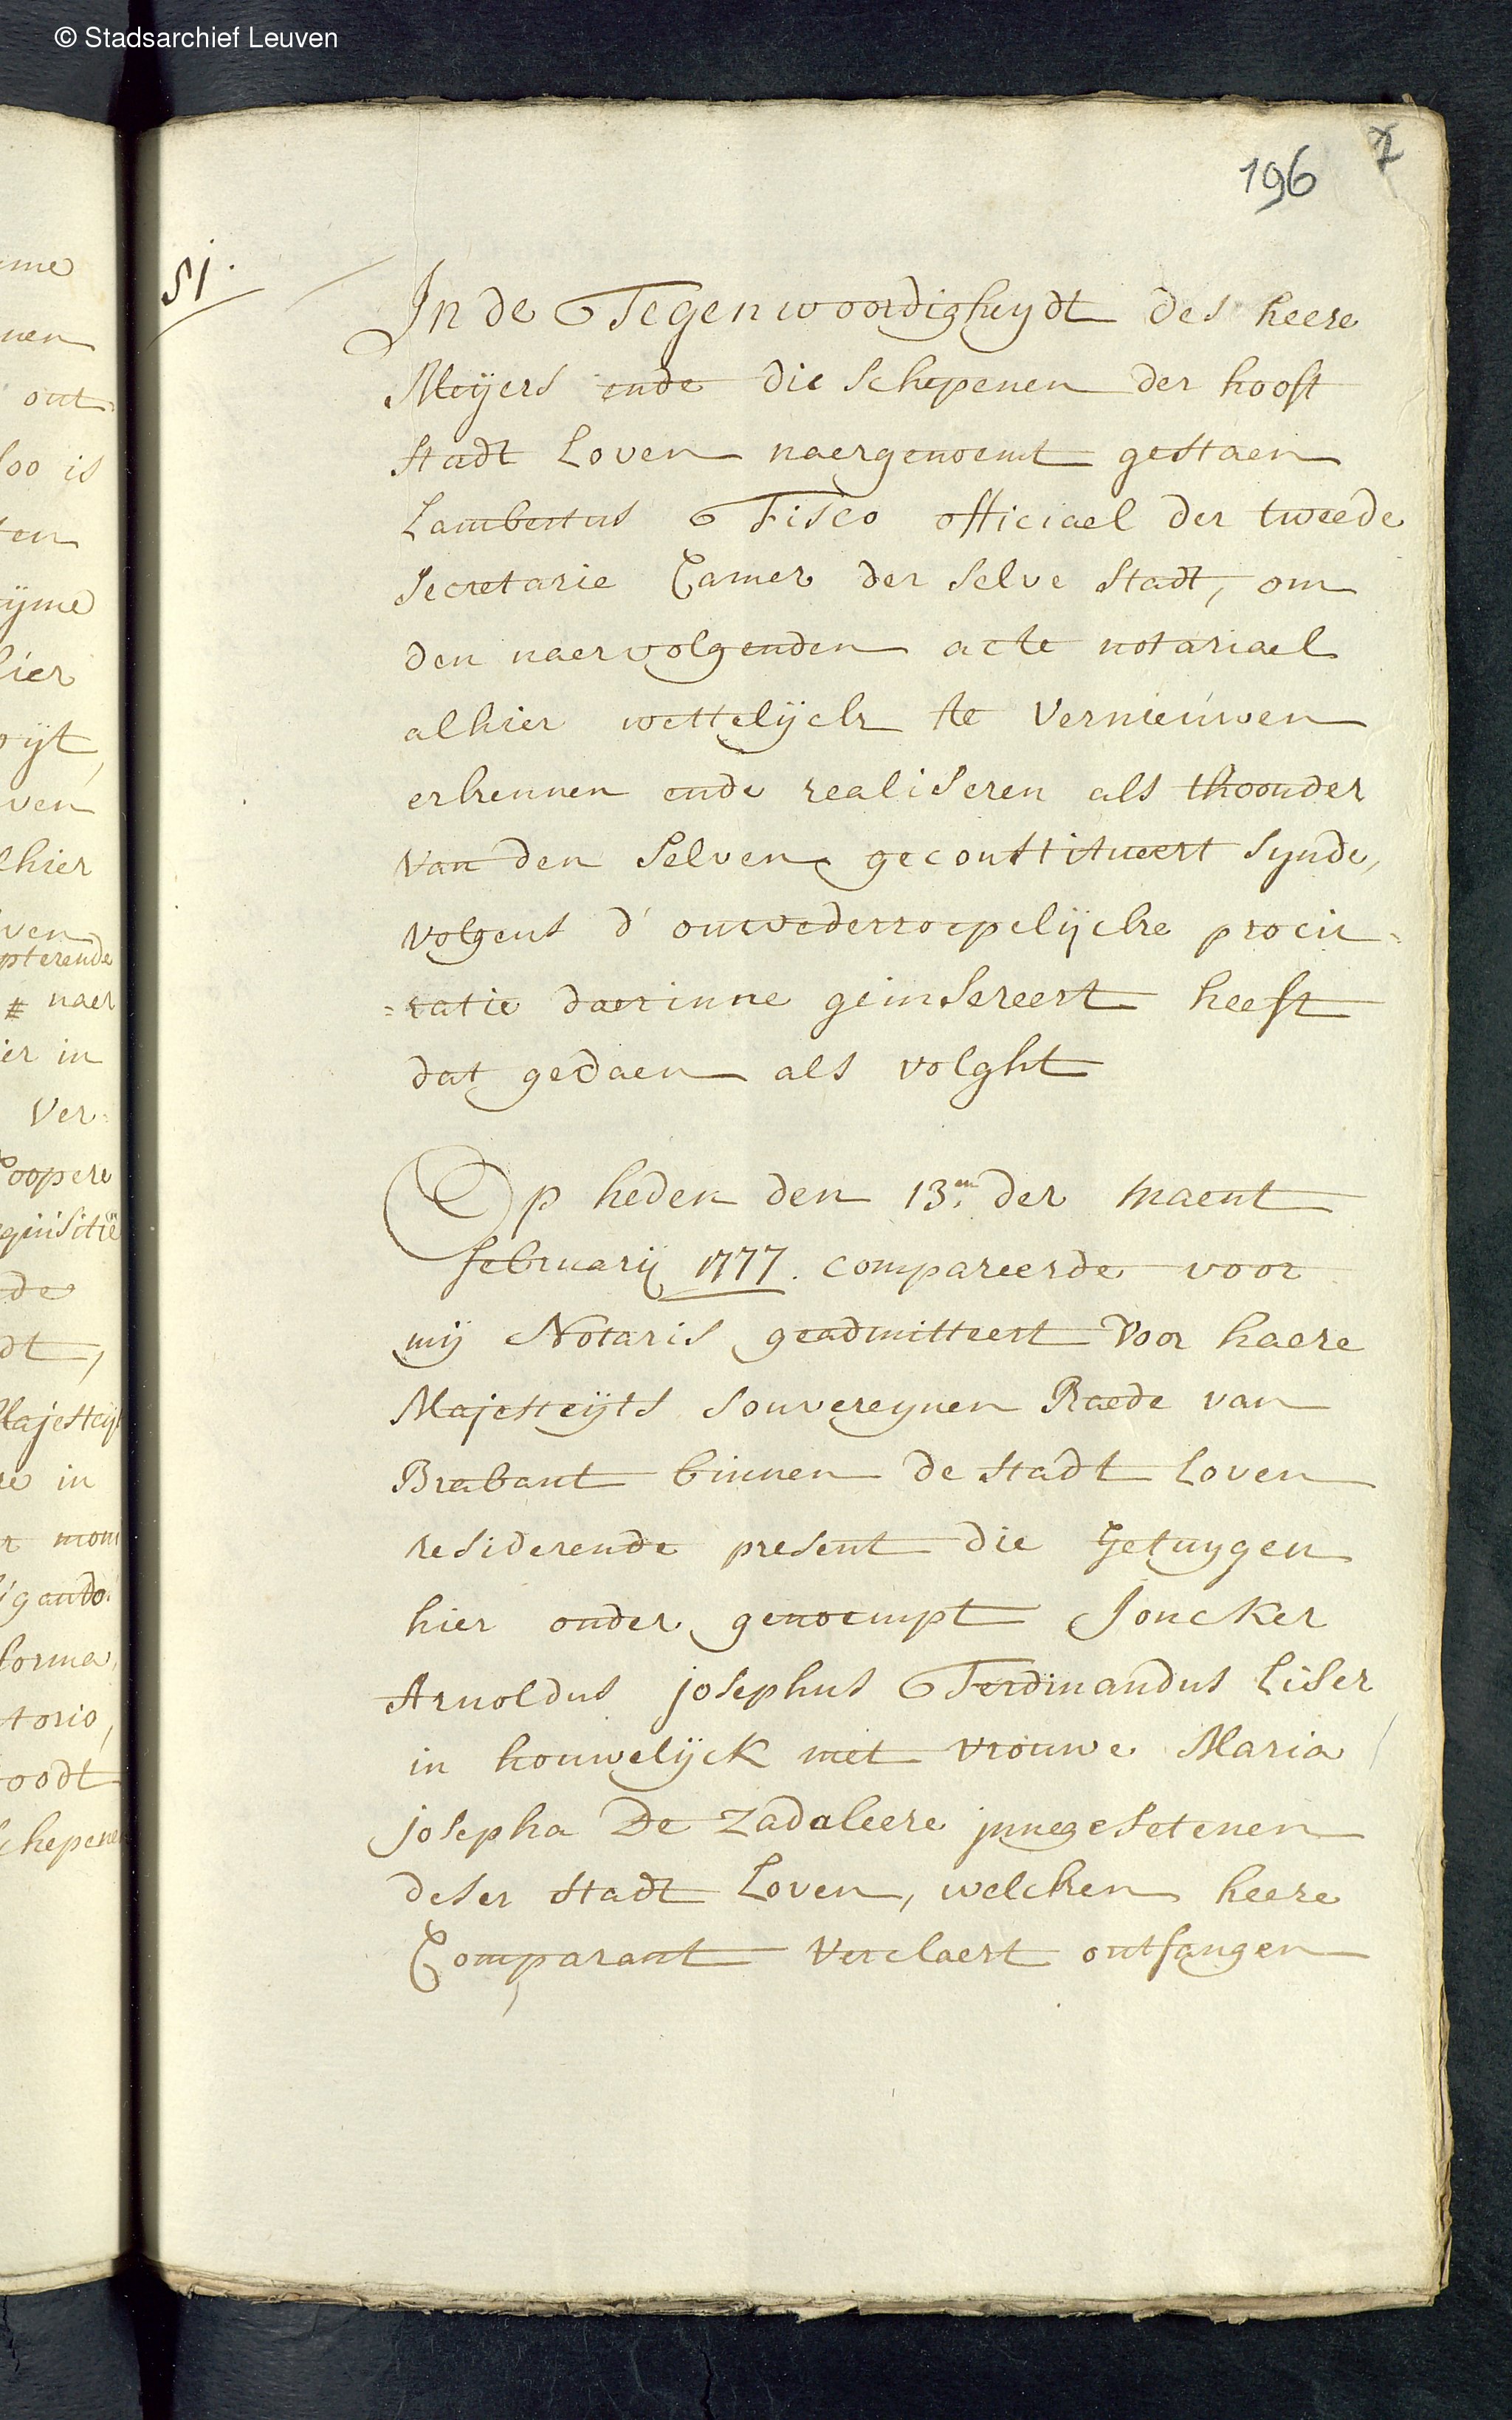 © Stadsarchief Leuven
196
51.
In de Tegenwoordigheydt des heere
Meÿers ende die schepenen der hooft
stadt Loven naergenoemt gestaen
Lambertus Fisco officiael der tweede
Secretarie Camer der selve stadt, om
den naervolgenden acte notariael
alhier wettelÿck te vernieuwen
erkennen ende realiseren als thoonder
van den selven geconstitueert synde,
volgens d' onwederroepelÿcke procu-
=ratie daerinne geinsereert heeft
dat gedaen als volght
Op heden den 13en der maent
februarÿ 1777. compareerde voor
mÿ Notaris geadmitteert voor haere
Majesteÿts souvereynen Raede van
Brabant binnen de stadt Loven
residerende present die getuygen
hier onder genoempt Joncker
Arnoldus josephus Ferdinandus Liser
in houwelÿck met vrouwe Maria
josepha De Zadaleere jnnegesetenen
deser stadt Loven, welcken heere
Comparant verclaert ontfangen